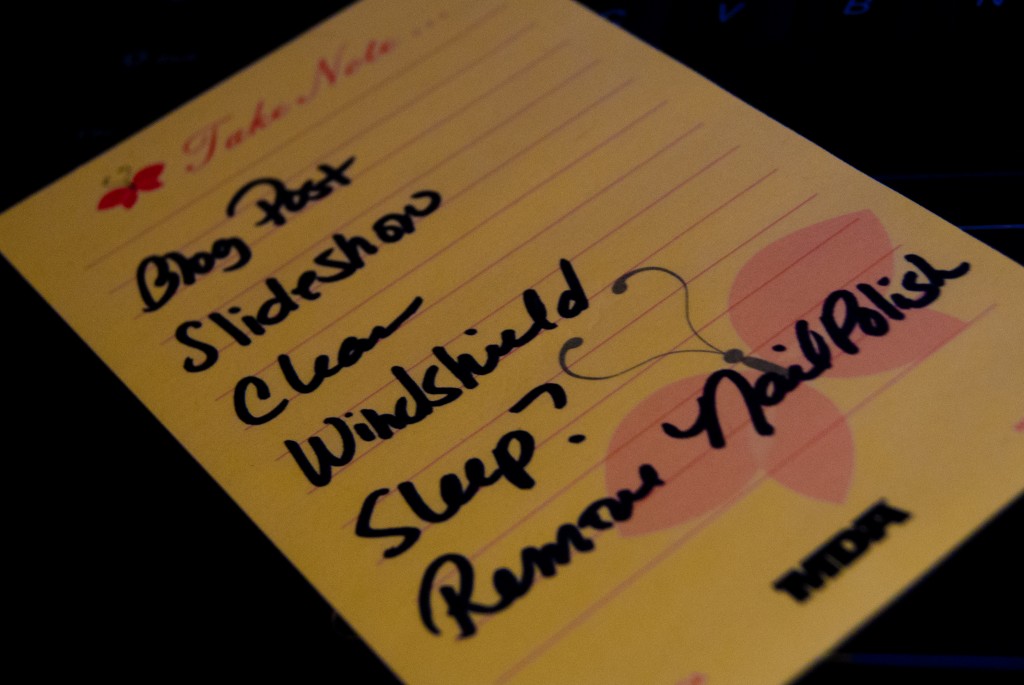 Take Note...
Blog Post
Slideshow
Clean
Windshield
Sleep?
Remove Nail Polish
MDA
V B N